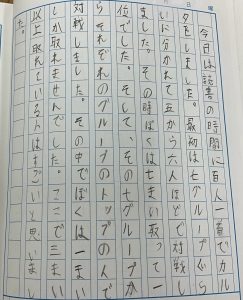 今日は読書の時間に百人一首でカル
タをしました。最初は七グループぐら
いに分かれて五から六人ほどで対戦し
ました。その時ぼくは七まい取って一
位でした。そして、その七グループか
らそれぞれのグループのトップの人で
対戦しました。その中でぼくは一まい
しか取れませんでした。ここで三まい
以上取れている人はすごいと思いまし
た。